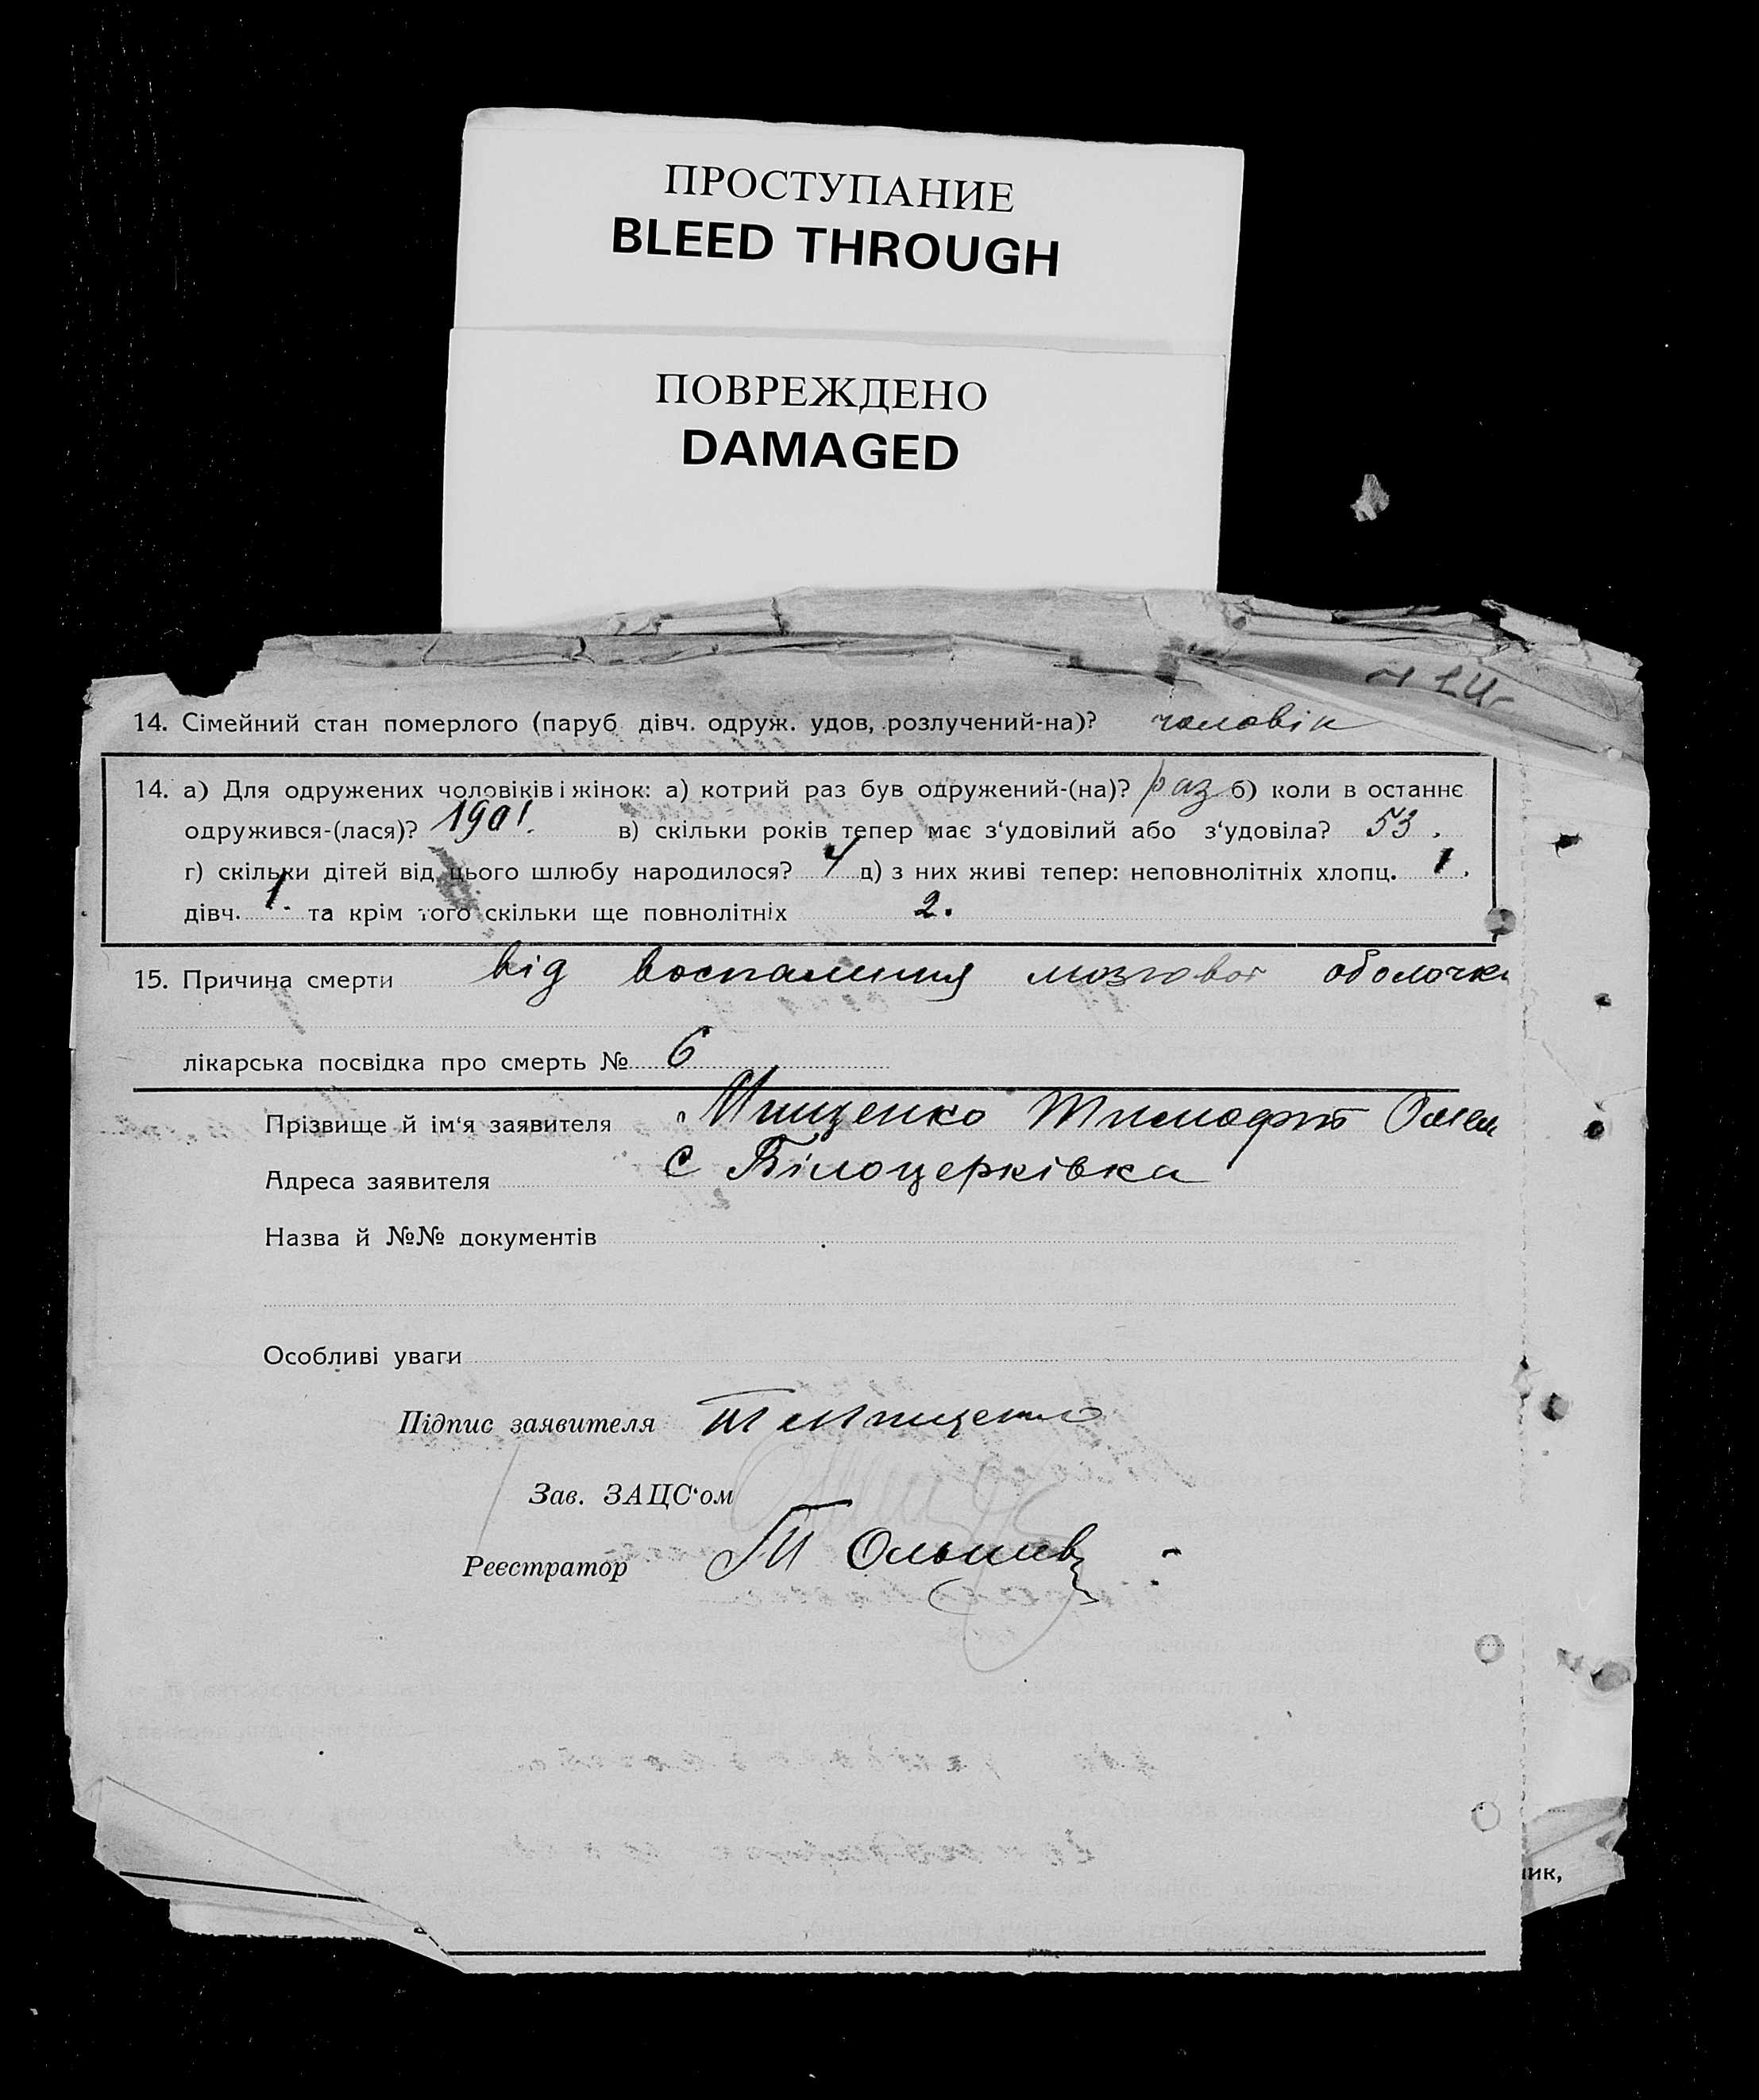 ПРОСТУПАНИЕ
BLEED THROUGH
ПОВРЕЖДЕНО
DAMAGED
14. Сімейний стан померлого (паруб дівч. одруж. удов, розлучений-на)? чоловік
14. а) Для одружених чоловіків і жінок: а) котрий раз був одружений-(на)? раз б) коли в останнє
одружився-(лася)? 1901. в) скільки років тепер має з‘удовілий або з‘удовіла? 53.
г) скільки дітей від цього шлюбу народилося? 4 д) з них живі тепер: неповнолітніх хлопц. 1.
дівч. 1. та крім того скільки ще повнолітніх 2.
15. Причина смерти від воспаления мозговой оболочки
лікарська посвідка про смерть № 6
Прізвище й ім‘я заявителя Мищенко Тимофій
Адреса заявителя с Білоцерківка
Назва й №№ документів
Особливі уваги
Підпис заявителя Т Мищенко
Зав. ЗАЦС‘ом
Реєстратор
ик,